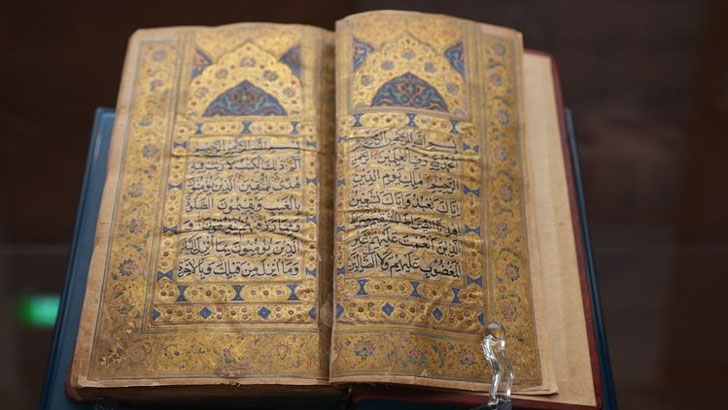 بسم الله الرحمن الرحيم
الحمد لله رب العلمين الرحمن
الرحيم ملك يوم الدين
إياك نعبد وإياك نستعين
اهدنا الصراط المستقيم صراط
الذين أنعمت عليهم غير
المغضوب عليهم ولا الضالين
بسم الله الرحمن الرحيم
الم ذلك الكتب لا ريب فيه
هدى للمتقين الذين يؤمنون
بالغيب ويقيمون الصلوة
ومما رزقنهم ينفقون و
الذين يؤمنون بما أنزل إليك
وما أنزل من قبلك وبالآخرة